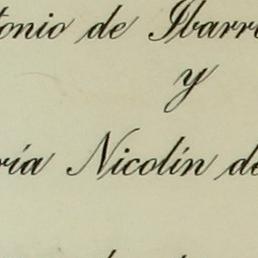 tonio de Ibarr
y
ría Nicolín de